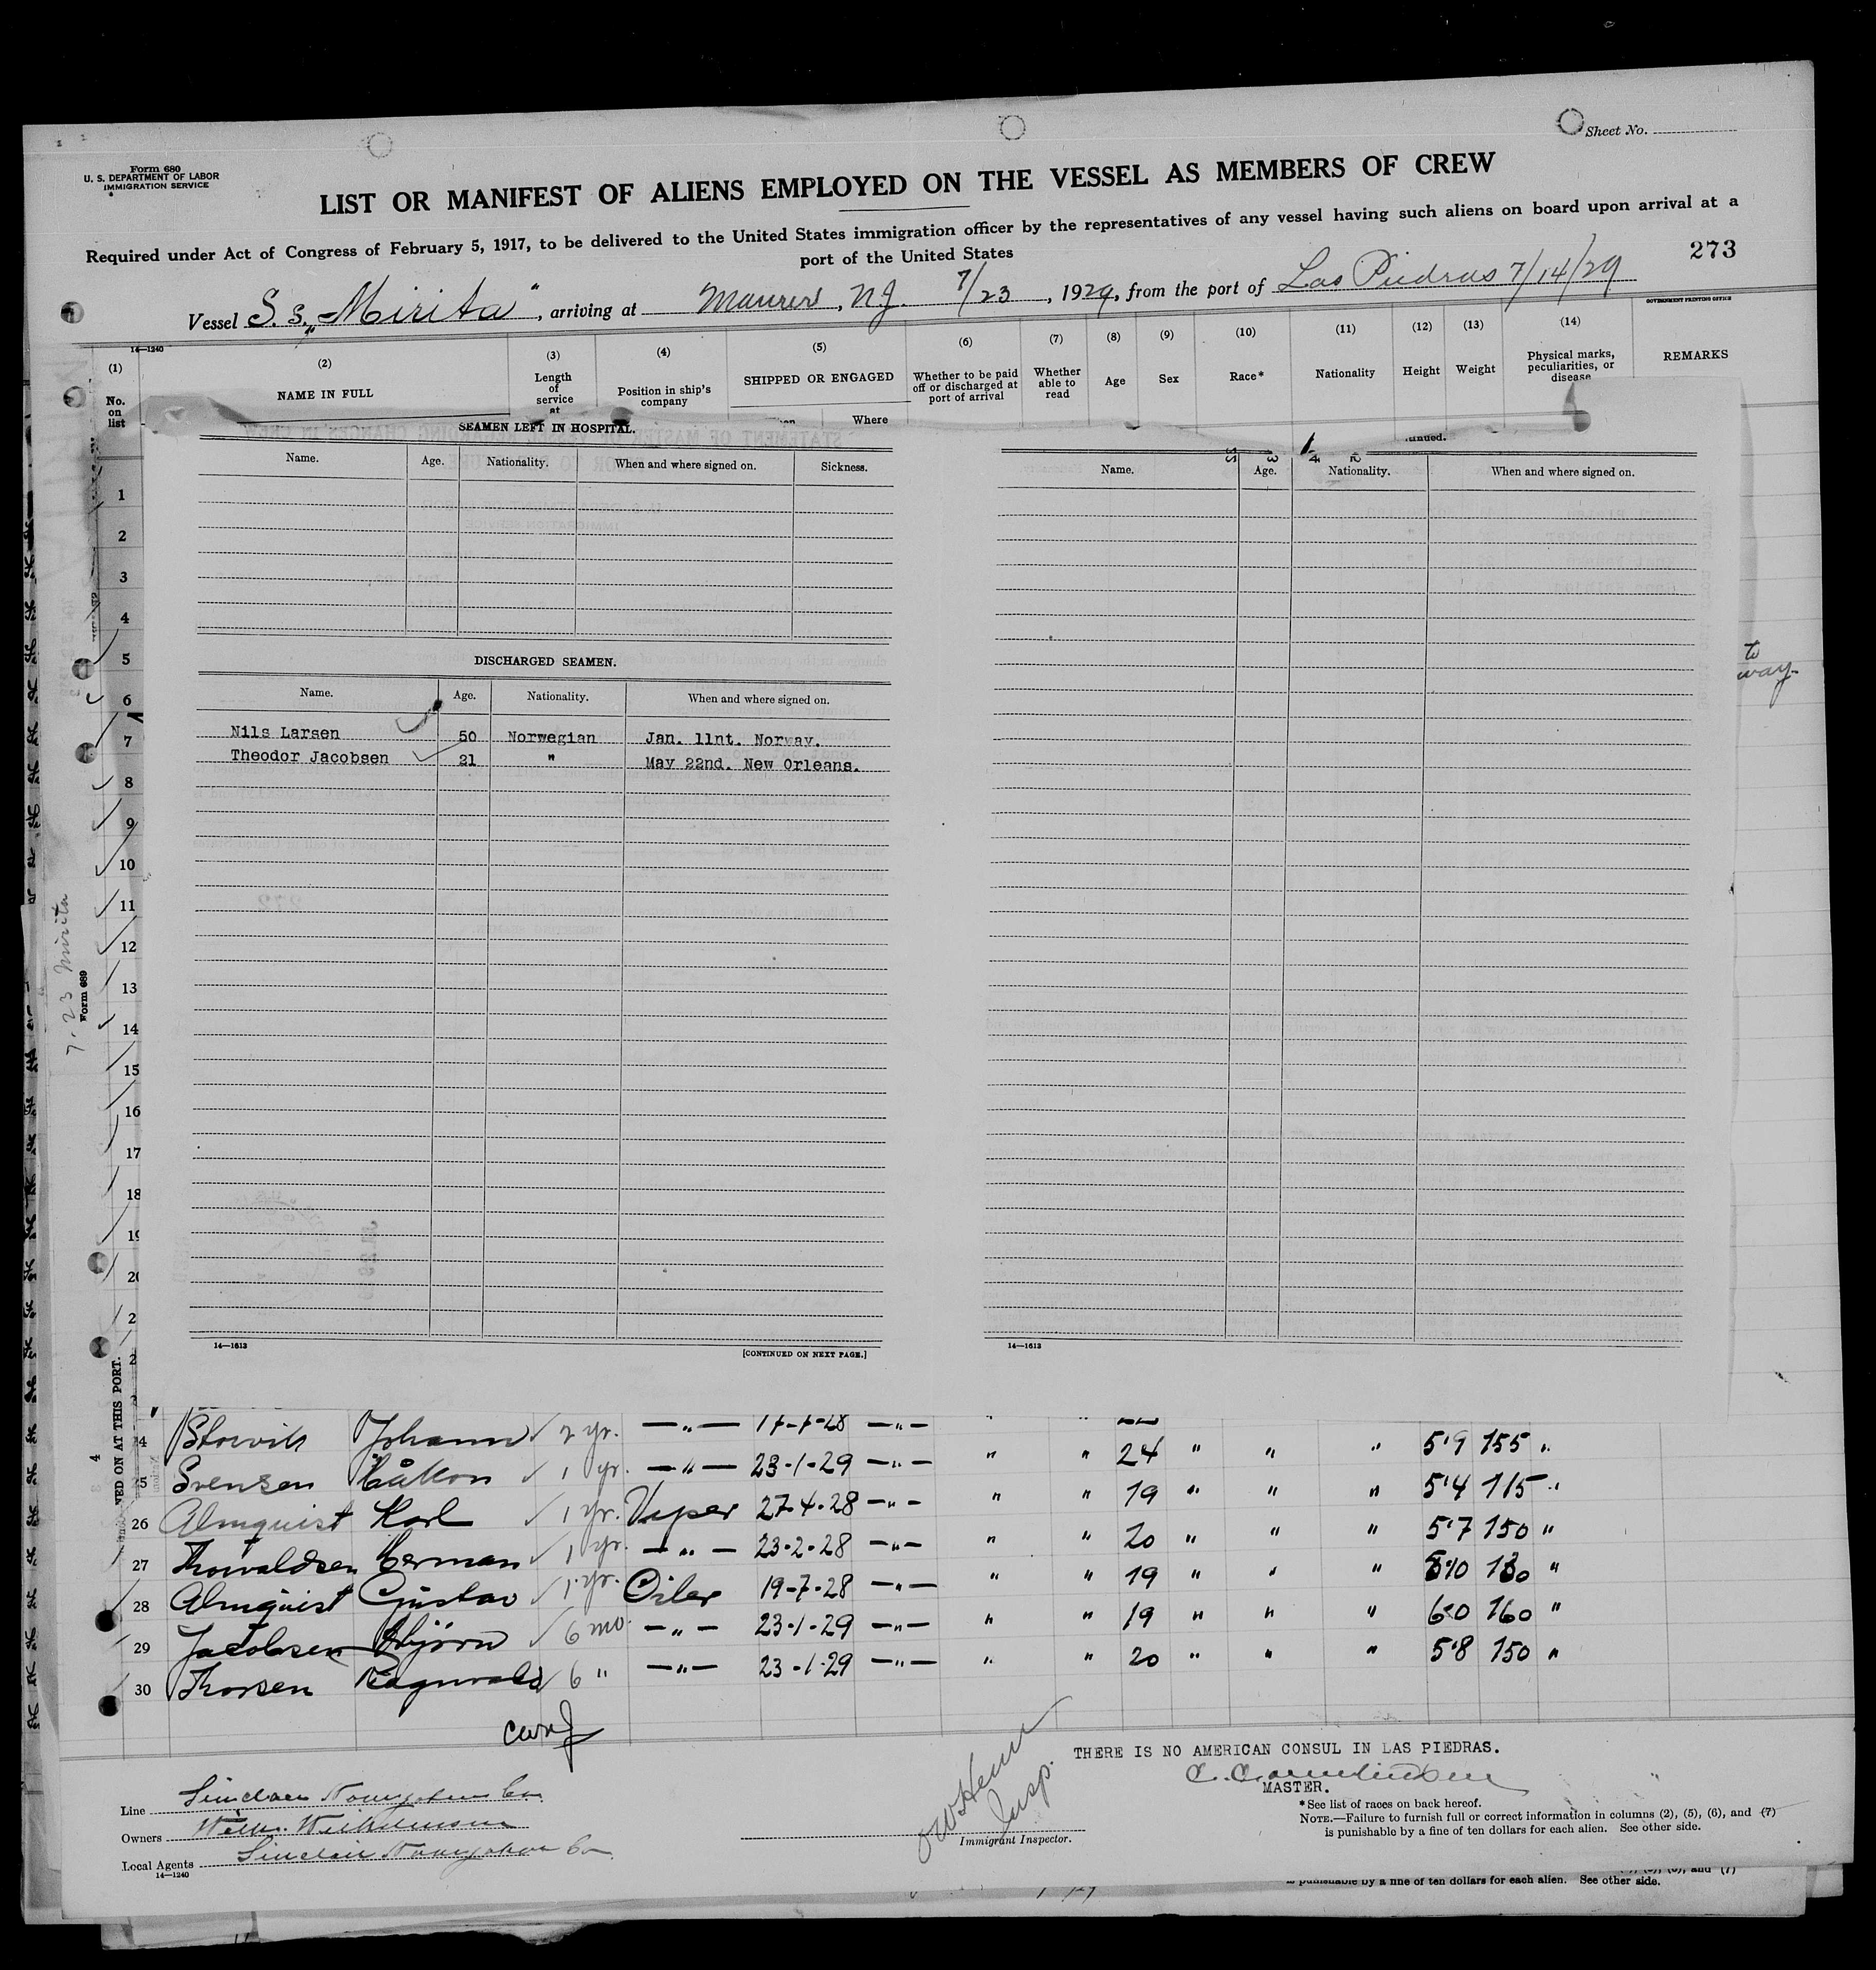 Sheet No.
Form 680
U. S. DEPARTMENT OF LABOR
IMMIGRATION SERVICE
LIST OR MANIFEST OF ALIENS EMPLOYED ON THE VESSEL AS MEMBERS OF CREW
Required under Act of Congress of February 5, 1917, to be delivered to the United States immigration officer by the representatives of any vessel having such aliens on board upon arrival at a
port of the United States
273
Vessel S. s. „Mirita“, arriving at Maurer, N.J. 7/23, 1929, from the port of Las Piedras 7/14/29
GOVERNMENT PRINTING OFFICE
14—1240
(1) (2) (3) (4) (5) (6) (7) (8) (9) (10) (11) (12) (13) (14)
No. on list
NAME IN FULL
Length of service at
Position in ship's company
SHIPPED OR ENGAGED
Where
Whether to be paid off or discharged at port of arrival
Whether able to read
Age
Sex
Race*
Nationality
Height
Weight
Physical marks, peculiarities, or disease
REMARKS
SEAMEN LEFT IN HOSPITAL.
Name. Age. Nationality. When and where signed on. Sickness.
Name. Age. Nationality. When and where signed on.
DISCHARGED SEAMEN.
Name. Age. Nationality. When and where signed on.
Nils Larsen 50 Norwegian Jan. 11nt. Norway.
Theodor Jacobsen 21 " May 22nd. New Orleans.
1
2
3
4
5
6
7
8
9
10
11
12
13
14
15
16
17
18
to
way
7-23 Mirita
Form 689
14—1613
[CONTINUED ON NEXT PAGE.]
14—1613
4
Johann 2 yr. —"— 17-7-28 —"—
25 Svensen Håkon 1 yr. —"— 23-1-29 —"— " " 24 " " " 5'9 155 "
26 Almquist Karl 1 yr. Viper 27-4-28 —"— " " 19 " " " 5'4 115 "
27 Thorvaldsen Herman 1 yr. —"— 23-2-28 —"— " " 20 " " " 5'7 150 "
28 Almquist Gustav 1 yr. Oiler 19-7-28 —"— " " 19 " " " 130 "
29 Jacobsen 6 mo. —"— 23-1-29 —"— " " 19 " " " 6'0 160 "
30 Thorsen Ragnvald 6 " —"— 23-1-29 —"— " " 20 " " " 5'8 150 "
THERE IS NO AMERICAN CONSUL IN LAS PIEDRAS.
MASTER.
Line Sinclair Navigation Co.
Owners Wilh. Wilhelmsen
Local Agents Sinclair Navigation Co.
14—1240
Insp.
Immigrant Inspector.
* See list of races on back hereof.
NOTE.—Failure to furnish full or correct information in columns (2), (5), (6), and (7)
is punishable by a fine of ten dollars for each alien. See other side.
is punishable by a fine of ten dollars for each alien. See other side.